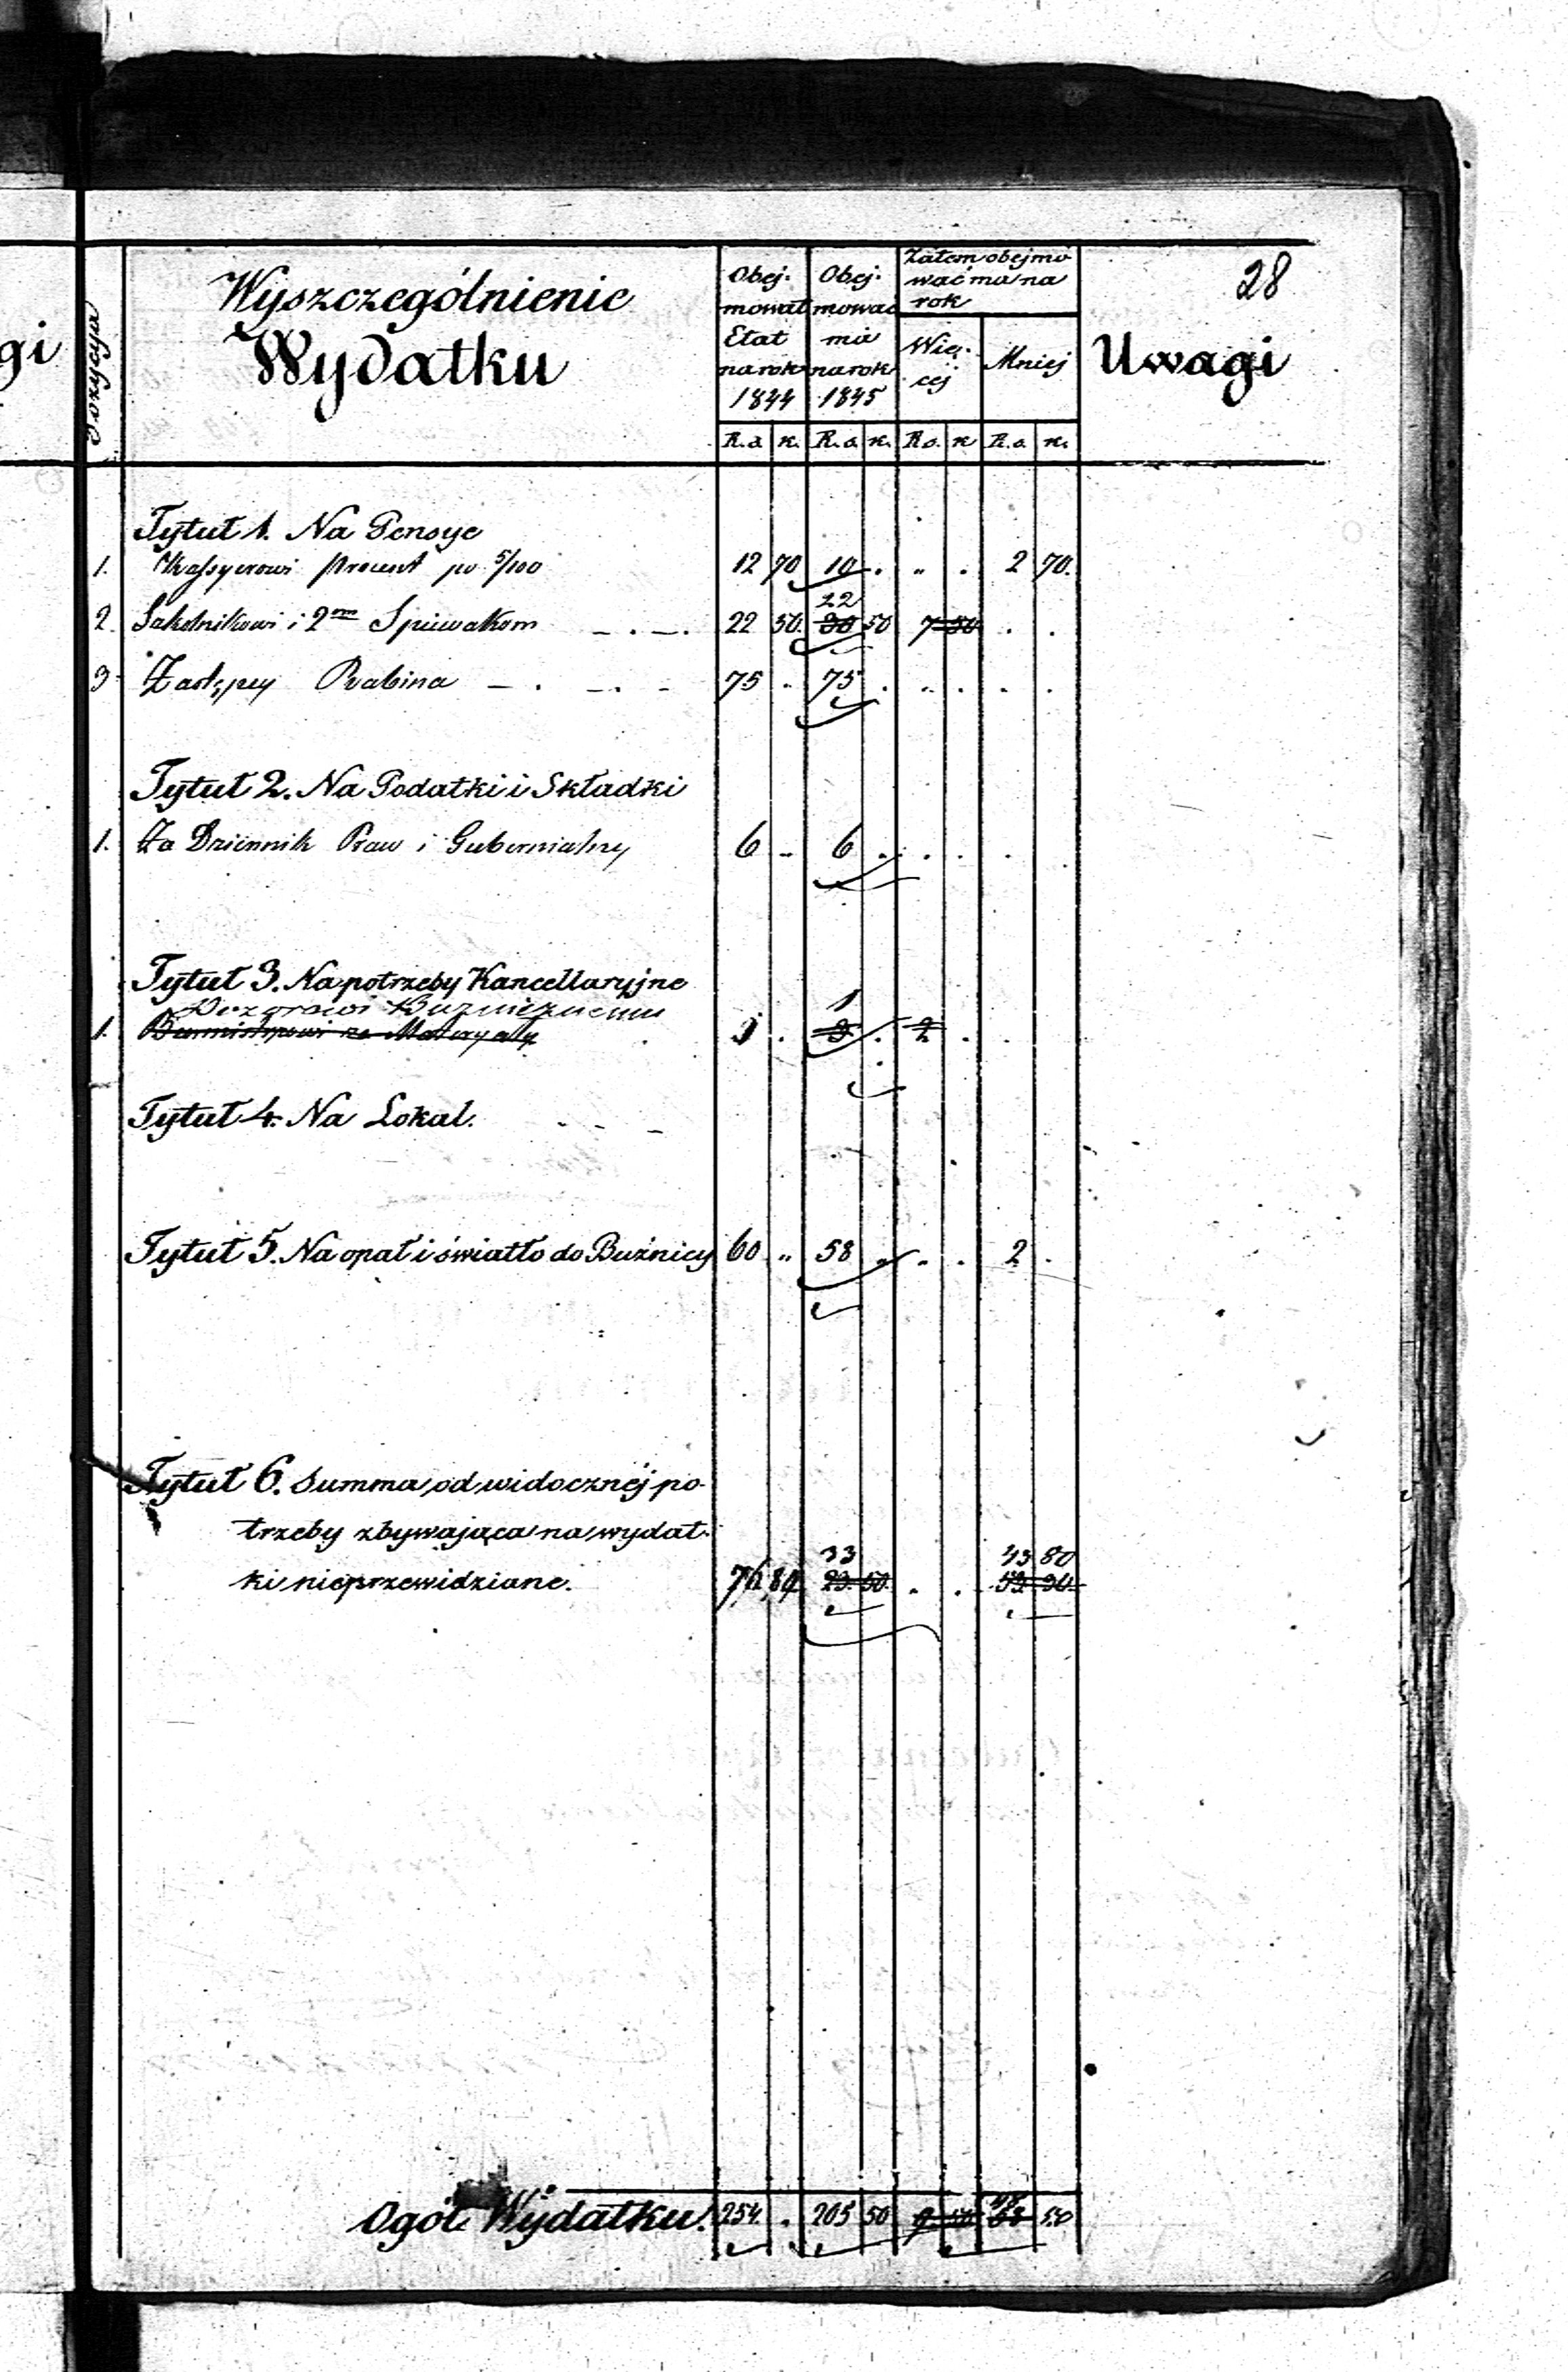 gi
28
Pozycya
Wyszczególnienie
Wydatku
Obej-
mował
Etat
na rok
1844
Obej-
mować
ma
na rok
1845
Zatem obejmo
wać ma na
rok
Wię-
cej
Mniej
Uwagi
R. s. k. R. s. k. R. s. k. R. s. k.
Tytuł 1. Na Pensye
1. Kassyerowi Procent po 5/100 12 70 10 . „ . 2 70.
22
2. Szkolnikowi i 2om Spiewakom — . — . 22 50. 30 50 7 50 . .
3 Zastępcy Rabina — . — . - 75 „ 75 . „ . . .
Tytuł 2. Na Podatki i Składki
1. Za Dziennik Praw i Gubernialny 6 „ 6 . . . .
Tytuł 3. Na potrzeby Kancellaryjne
Dozorowi Bużnicznemu 1
1. Burmistrzowi za Materyały 1 . 3 . 2 . .
Tytuł 4. Na Lokal. - - -
Tytuł 5. Na opał i światło do Bużnicy 60 „ 58 „ „ . 2 .
Tytuł 6. Summa od widocznéj po-
trzeby zbywająca na wydat-
33 43 80
ki nieprzewidziane. 76 80 23 50 . . 53 30
Ogół Wydatku. 254 . 205 50 9 50 48 58 50